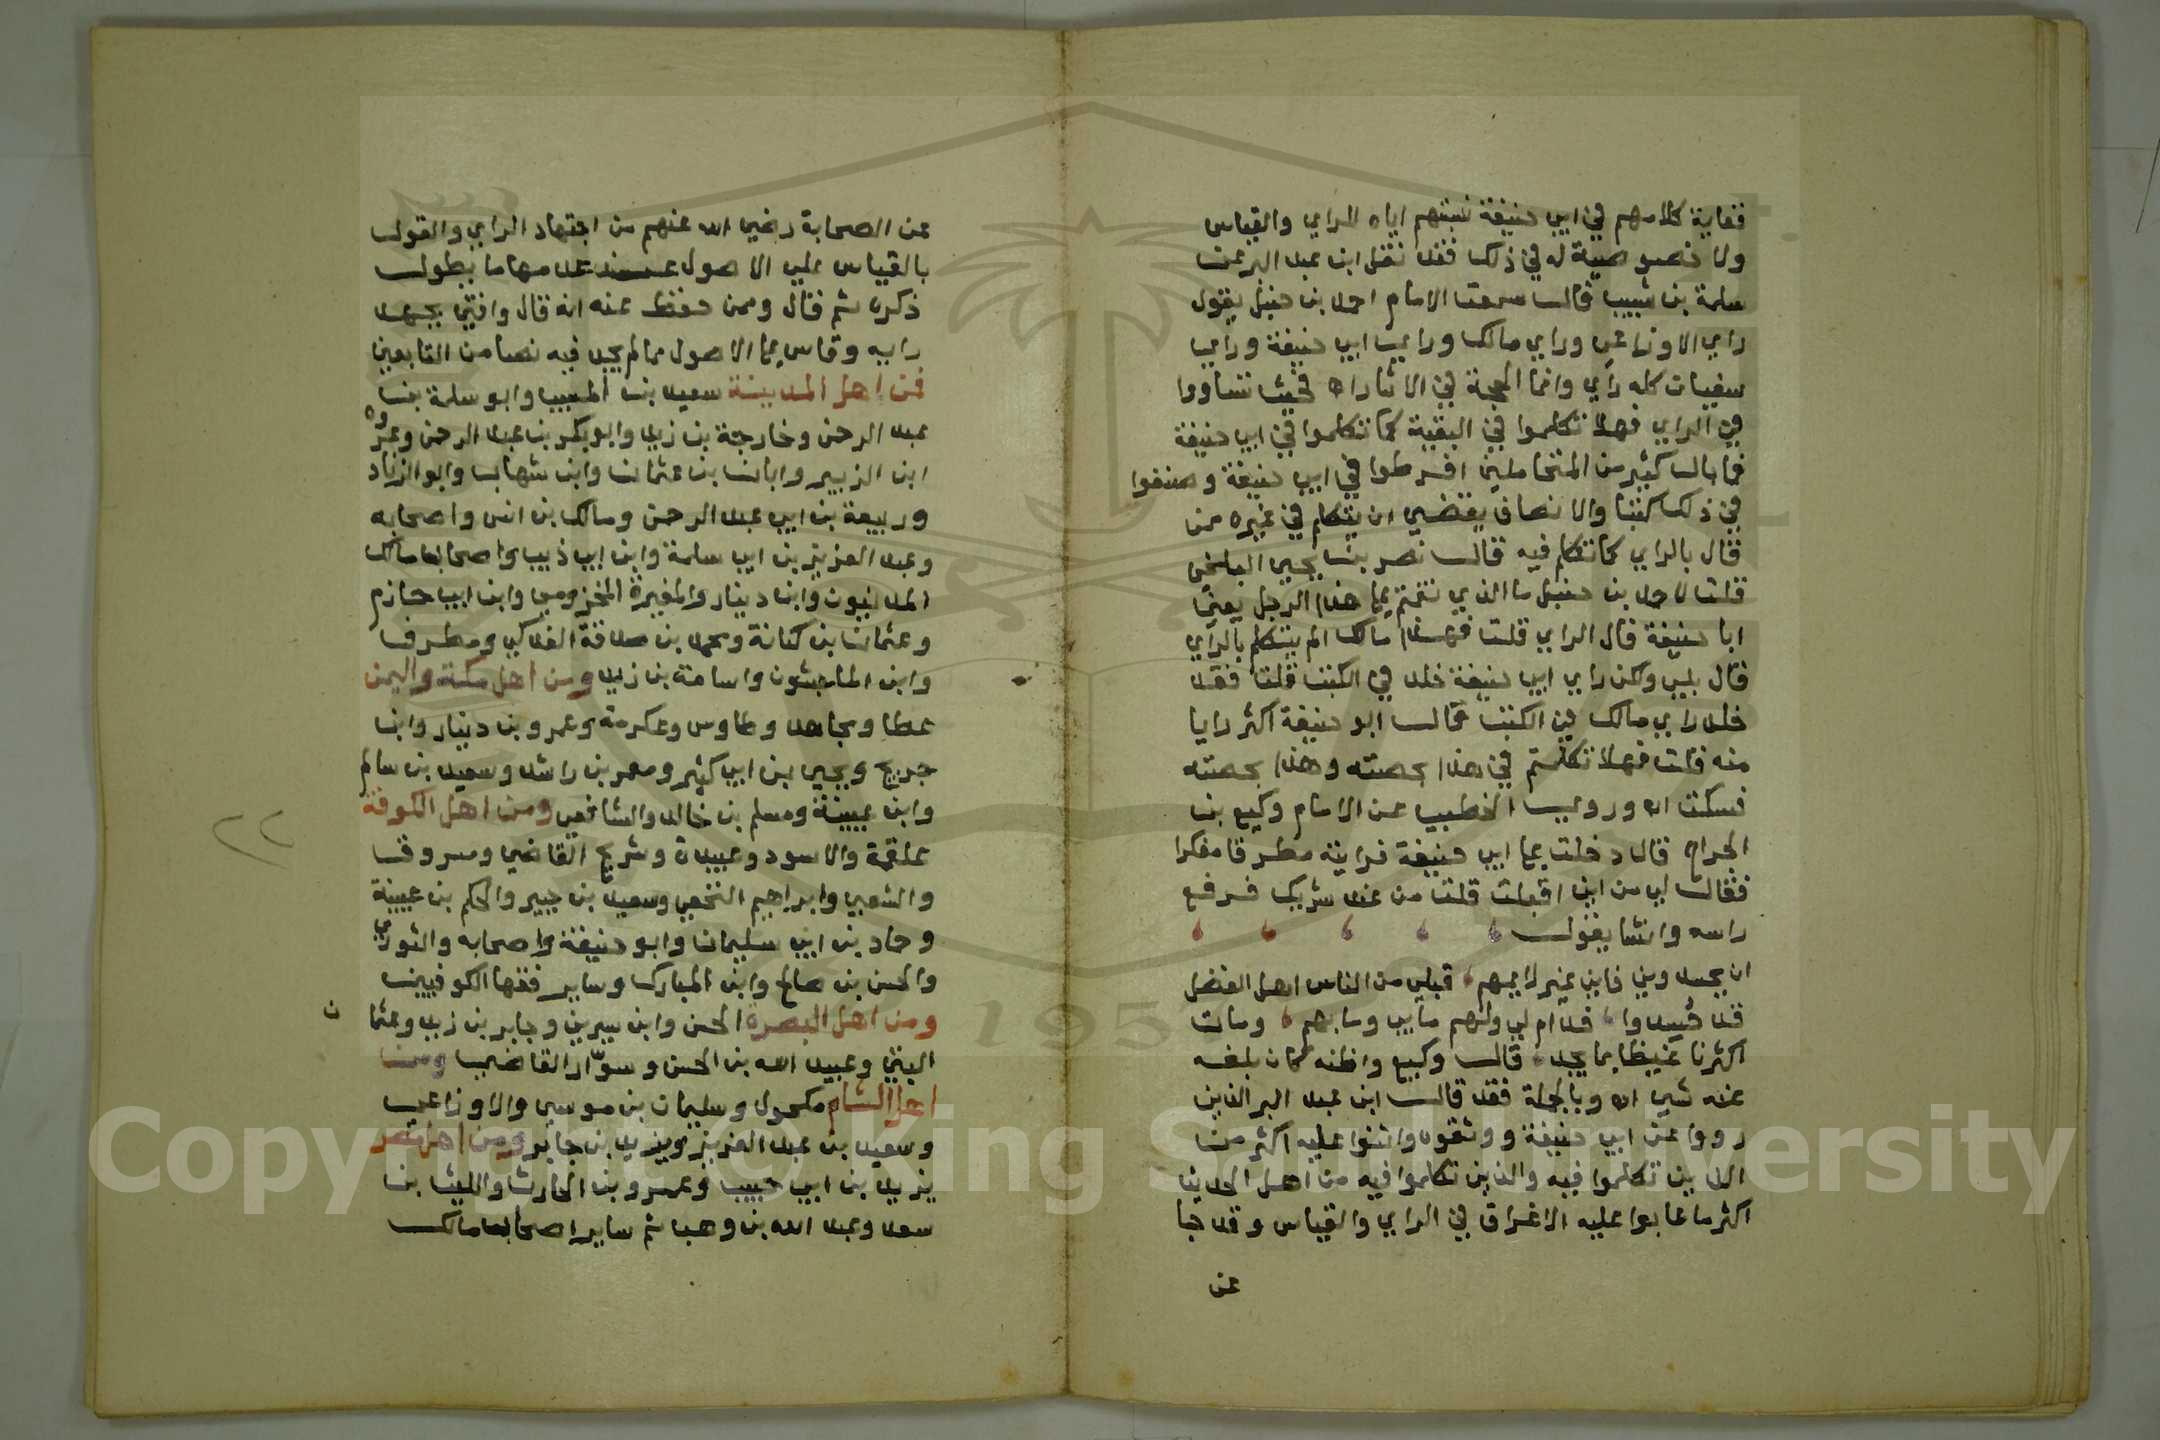 فغاية كلامهم في ابي حنيفة نسبتهم اياه للراي والقياس
ولا خصوصية له في ذلك فقد نقل ابن عبد البر عن
سلمة بن شبيب قال سمعت الامام احمد بن حنبل يقول
راي الاوزاعي وراي مالك وراي ابي حنيفة وراي
سفيان كله راي وانما الحجة في الاثار اه فحيث تساووا
في الراي فهلا تكلموا في البقية كما تكلموا في ابي حنيفة
فما بال كثير من المتحاملين افرطوا في ابي حنيفة وصنفوا
في ذلك كتبا والانصاف يقتضي ان يتكلم في غيره ممن
قال بالراي كما تكلم فيه قال نصر بن يحيى البلخي
قلت لاحمد بن حنبل ما الذي نقمتم على هذا الرجل يعني
ابا حنيفة قال الراي قلت فهذا مالك الم يتكلم بالراي
قال بلى ولكن راي ابي حنيفة خلد في الكتب قلت فقد
خلد راي مالك في الكتب قال ابو حنيفة اكثر رايا
منه قلت فهلا تكلمتم في هذا بحصته وهذا بحصته
فسكت اه وروى الخطيب عن الامام وكيع بن
الجراح قال دخلت على ابي حنيفة فرايته مطرقا مفكرا
فقال لي من اين اقبلت قلت من عند شريك فرفع
راسه وانشا يقول
ان يحسدوني فاني غير لايمهم ، قبلي من الناس اهل الفضل
قد حسدوا ، فدام لي ولهم مابي وما بهم ، ومات
اكثرنا غيظا بما يجد ، قال وكيع واظنه كان بلغه
عنه شي اه وبالجملة فقد قال ابن عبد البر الذين
رووا عن ابي حنيفة ووثقوه واثنوا عليه اكثر من
الذين تكلموا فيه والذين تكلموا فيه من اهل الحديث
اكثر ما عابوا عليه الاغراق في الراي والقياس وقد جا
عن
عن الصحابة رضي الله عنهم من اجتهاد الراي والقول
بالقياس على الاصول عند عدمها ما يطول
ذكره ثم قال وممن حفظ عنه انه قال وافتى مجتهدا
رايه وقاس على الاصول مما لم يجد فيه نصا من التابعين
فمن اهل المدينة سعيد بن المسيب وابو سلمة بن
عبد الرحمن وخارجة بن زيد وابوبكر بن عبد الرحمن وعروه
ابن الزبير وابان بن عثمان وابن شهاب وابو الزناد
وربيعة بن ابي عبد الرحمن ومالك بن انس واصحابه
وعبد العزيز بن ابي سلمة وابن ابي ذيب واصحاب مالك
المدنيون وابن دينار والمغيرة المخزومي وابن ابي حازم
وعثمان بن كنانة ومحمد بن صدقة الفدكي ومطرف
وابن الماجشون واسامة بن زيد ومن اهل مكة واليمن
عطا ومجاهد وطاوس وعكرمة وعمرو بن دينار وابن
جريج ويحيى بن ابي كثير ومعمر بن راشد وسعيد بن سالم
وابن عيينة ومسلم بن خالد والشافعي ومن اهل الكوفة
علقمة والاسود وعبيدة وشريح القاضي ومسروق
والشعبي وابراهيم النخعي وسعيد بن جبير والحكم بن عيينة
وحماد بن ابي سليمان وابو حنيفة واصحابه والثوري
والحسن بن صالح وابن المبارك وساير فقها الكوفيين
ومن اهل البصرة الحسن وابن سيرين وجابر بن زيد وعثما ن
البتي وعبيد الله بن الحسن وسوّار القاضي ومن
اهل الشام مكحول وسليمان بن موسى والاوزاعي
وسعيد بن عبد العزيز ويزيد بن جابر ومن اهل مصر
يزيد بن ابي حبيب وعمرو بن الحارث والليث بن
سعد وعبد الله بن وهب ثم ساير اصحاب مالك
Copyright © King Saud University
195